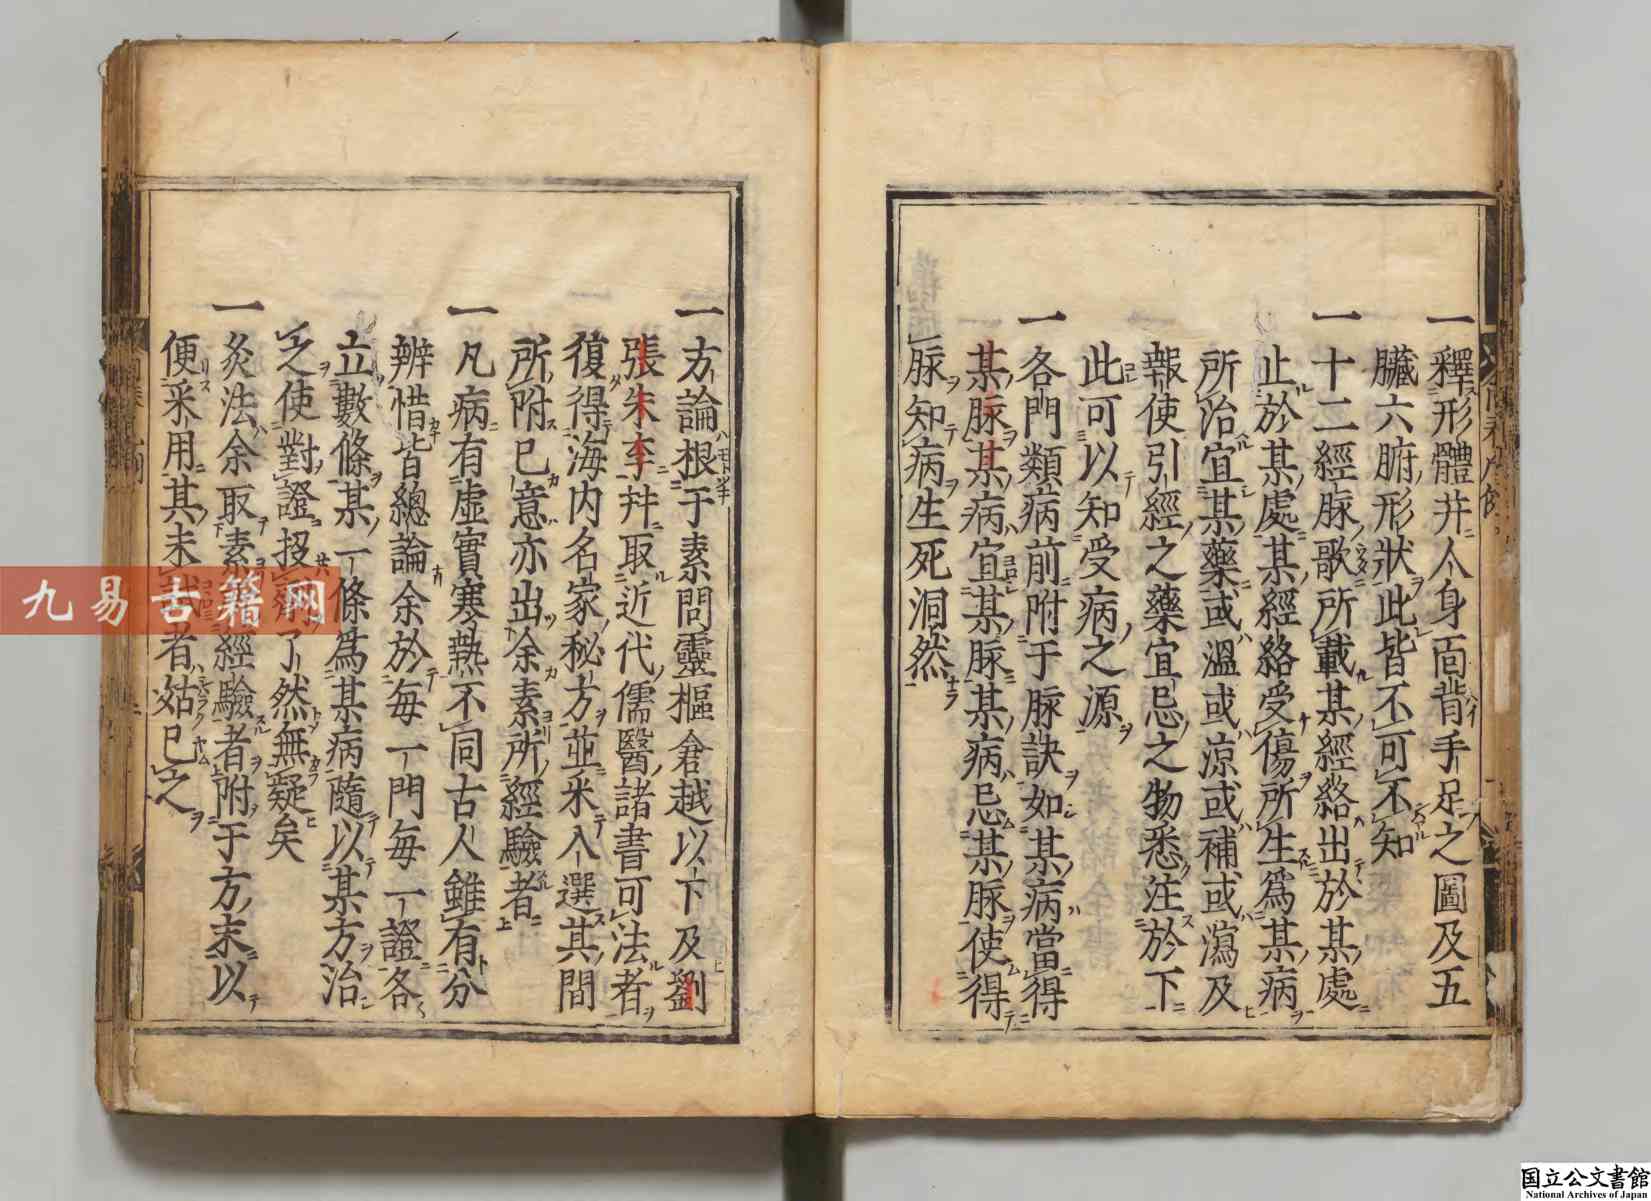 一釋形體幷人身靣背手足之圖及五
臟六腑形狀此皆不可不知
一十二經脉歌所載某經絡出於某處
止於某處某經絡受傷所生爲某病
所治宜某藥或溫或凉或補或瀉及
報使引經之藥宜忌之物悉注於下
此可以知受病之源
一各門類病前附于脉訣如某病當得
某脉某病宜某脉某病忌某脉使得
脉知病生死洞然
一方論根于素問靈樞倉越以下及劉
張朱李幷取近代儒醫諸書可法者
復得海内名家秘方並采入選其間
所附己意亦出余素所經驗者
一凡病有虛實寒熱不同古人雖有分
辨惜皆總論余於每一門每一證各
立數條某一條爲某病隨以某方治
之使對證投劑了然無疑矣
一灸法余取素 經驗者附于方末以
便采用其未 者姑已之
九易古籍网
国立公文書館
National Archives of Japan